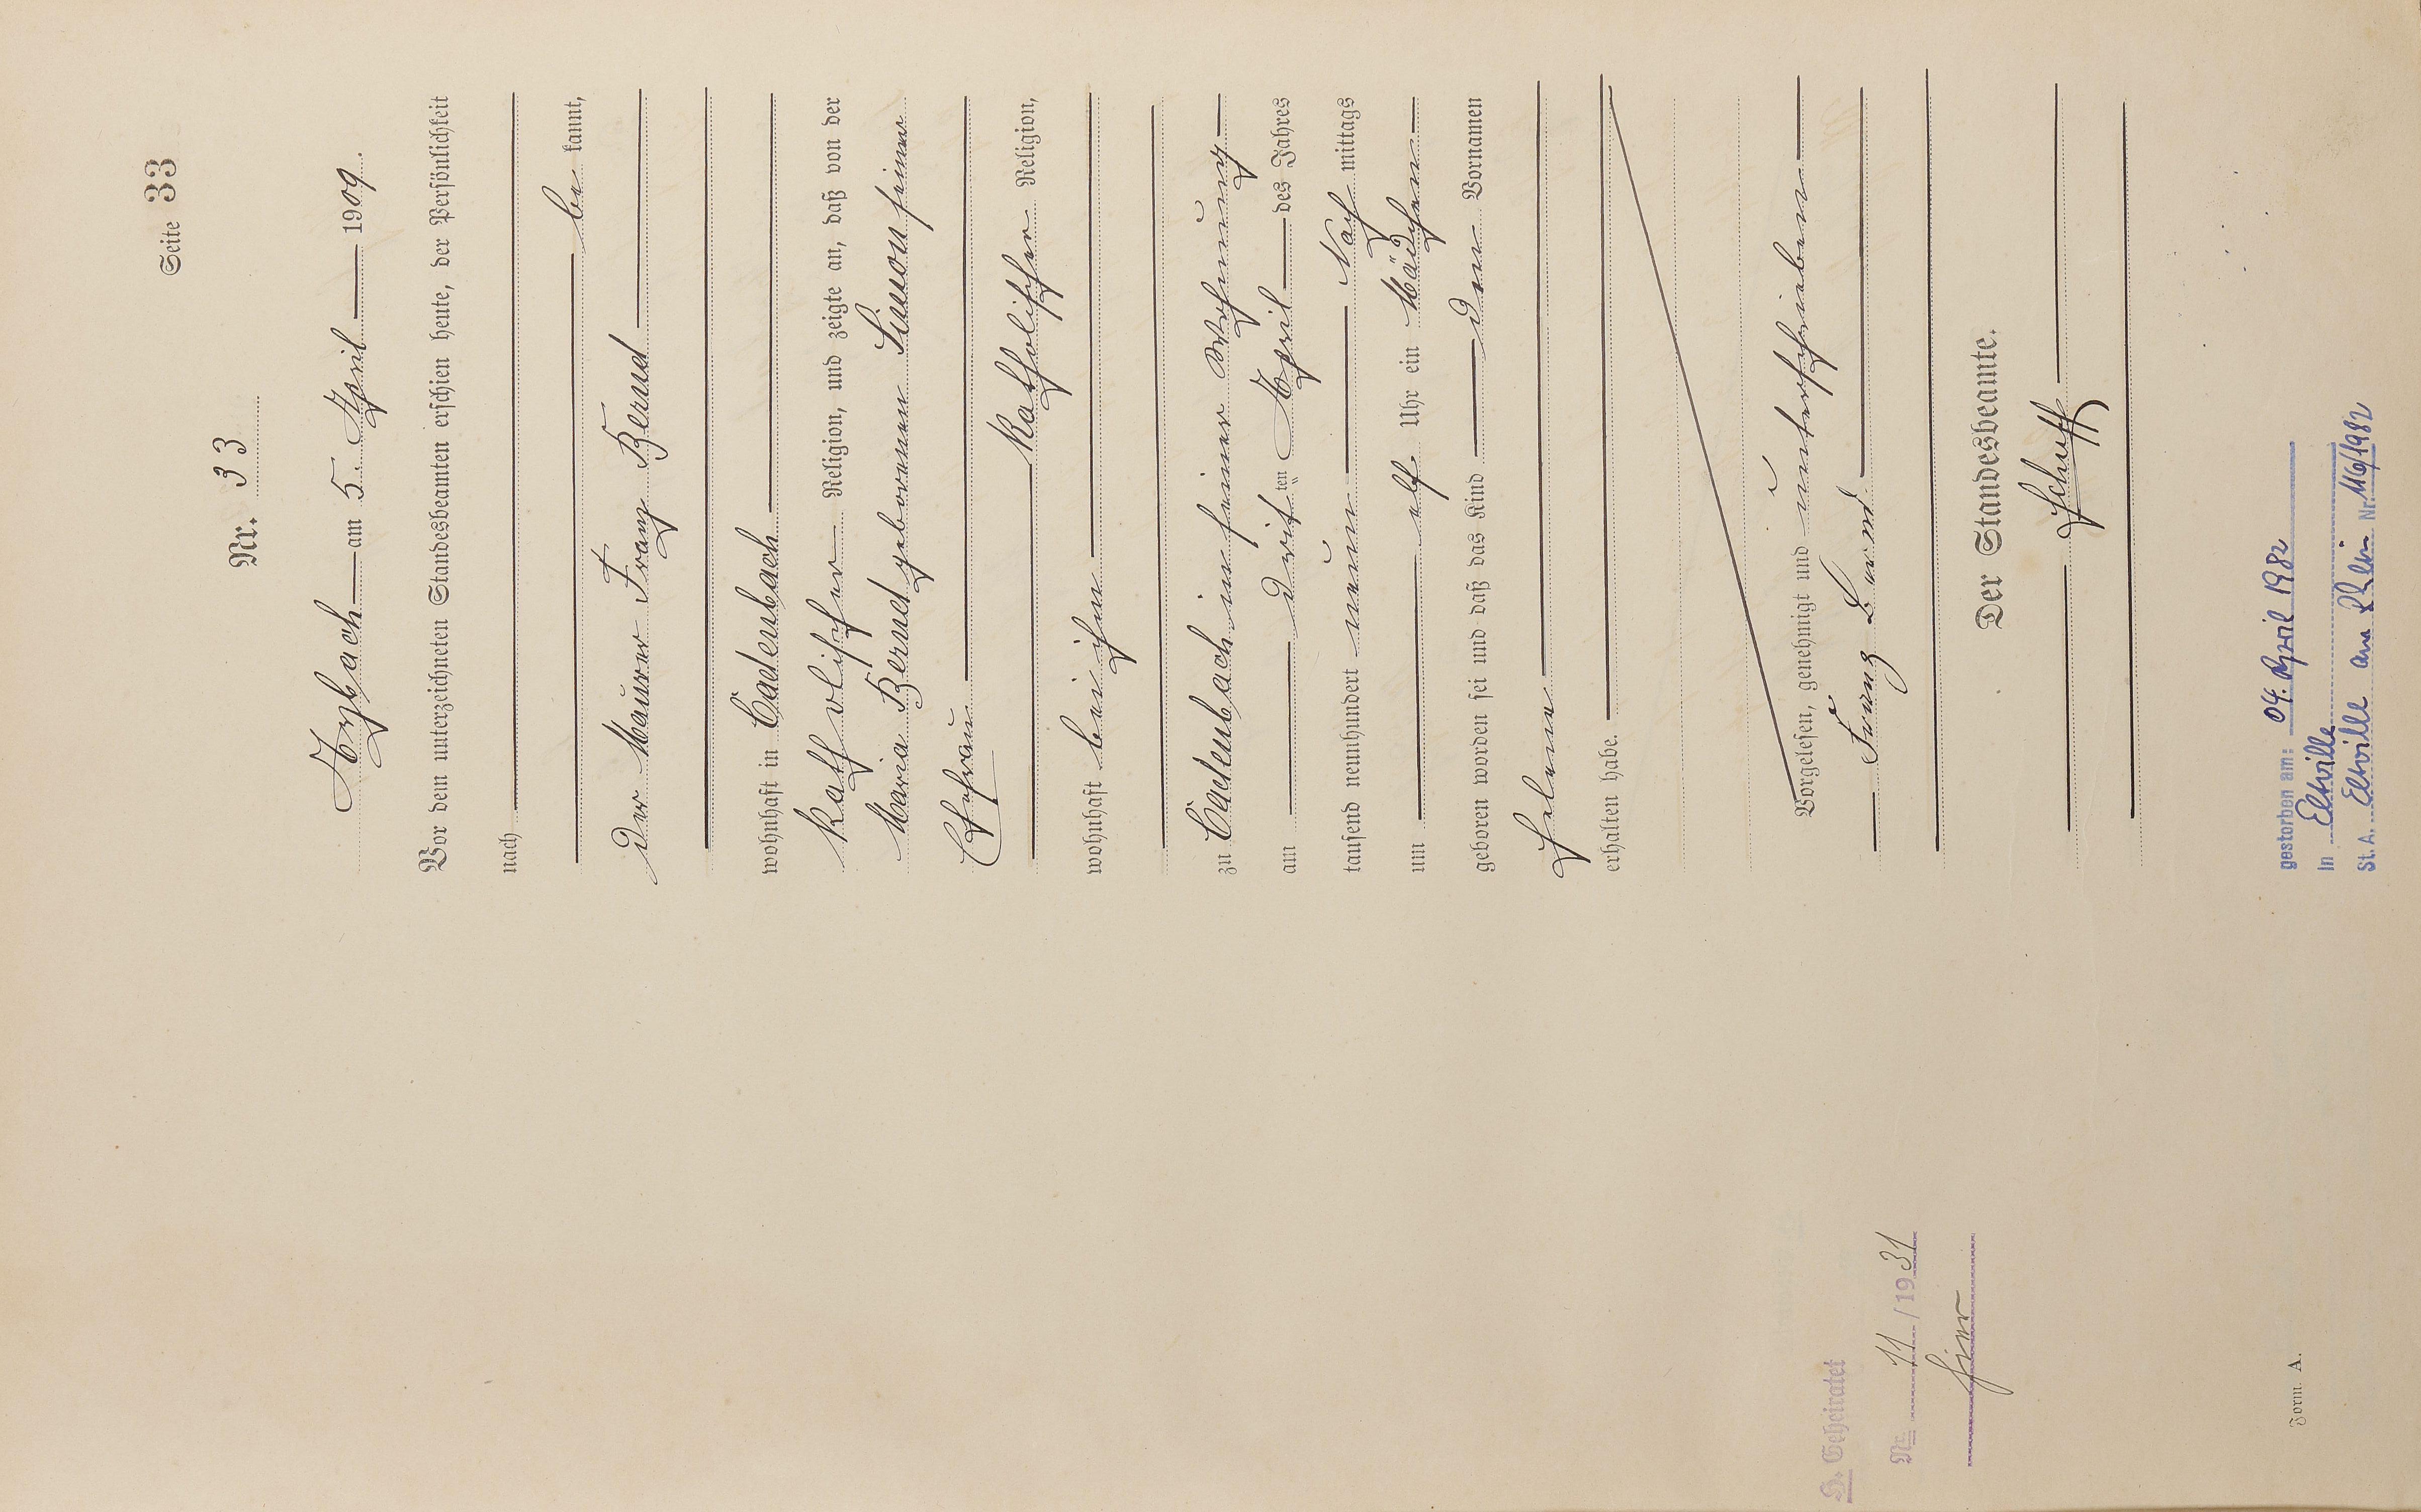 Seite 33
Nr. 33
Arzbach am 5. April 1909.
Vor dem unterzeichneten Standesbeamten erschien heute, der Persönlichkeit
nach
be kannt,
der Maurer Franz Bernd
wohnhaft in Cadenbach
katholischer Religion, und zeigte an, daß von der
Maria Bernd geborenen Simon seiner
Ehefrau
katholischer Religion,
wohnhaft bei ihm
zu Cadenbach in seiner Wohnung
am dritten April des Jahres
tausend neunhundert neun Nach mittags
um elf Uhr ein Mädchen
geboren worden sei und daß das Kind den Vornamen
Helene
erhalten habe.
Vorgelesen, genehmigt und unterschrieben
Franz Bernd
Der Standesbeamte.
Schuff
H. Geheiratet
Nr. 11/1931
hier
gestorben am: 04. April 1982
in Eltville
St. A. Eltville am Rhein Nr. 116/1982
Form. A.